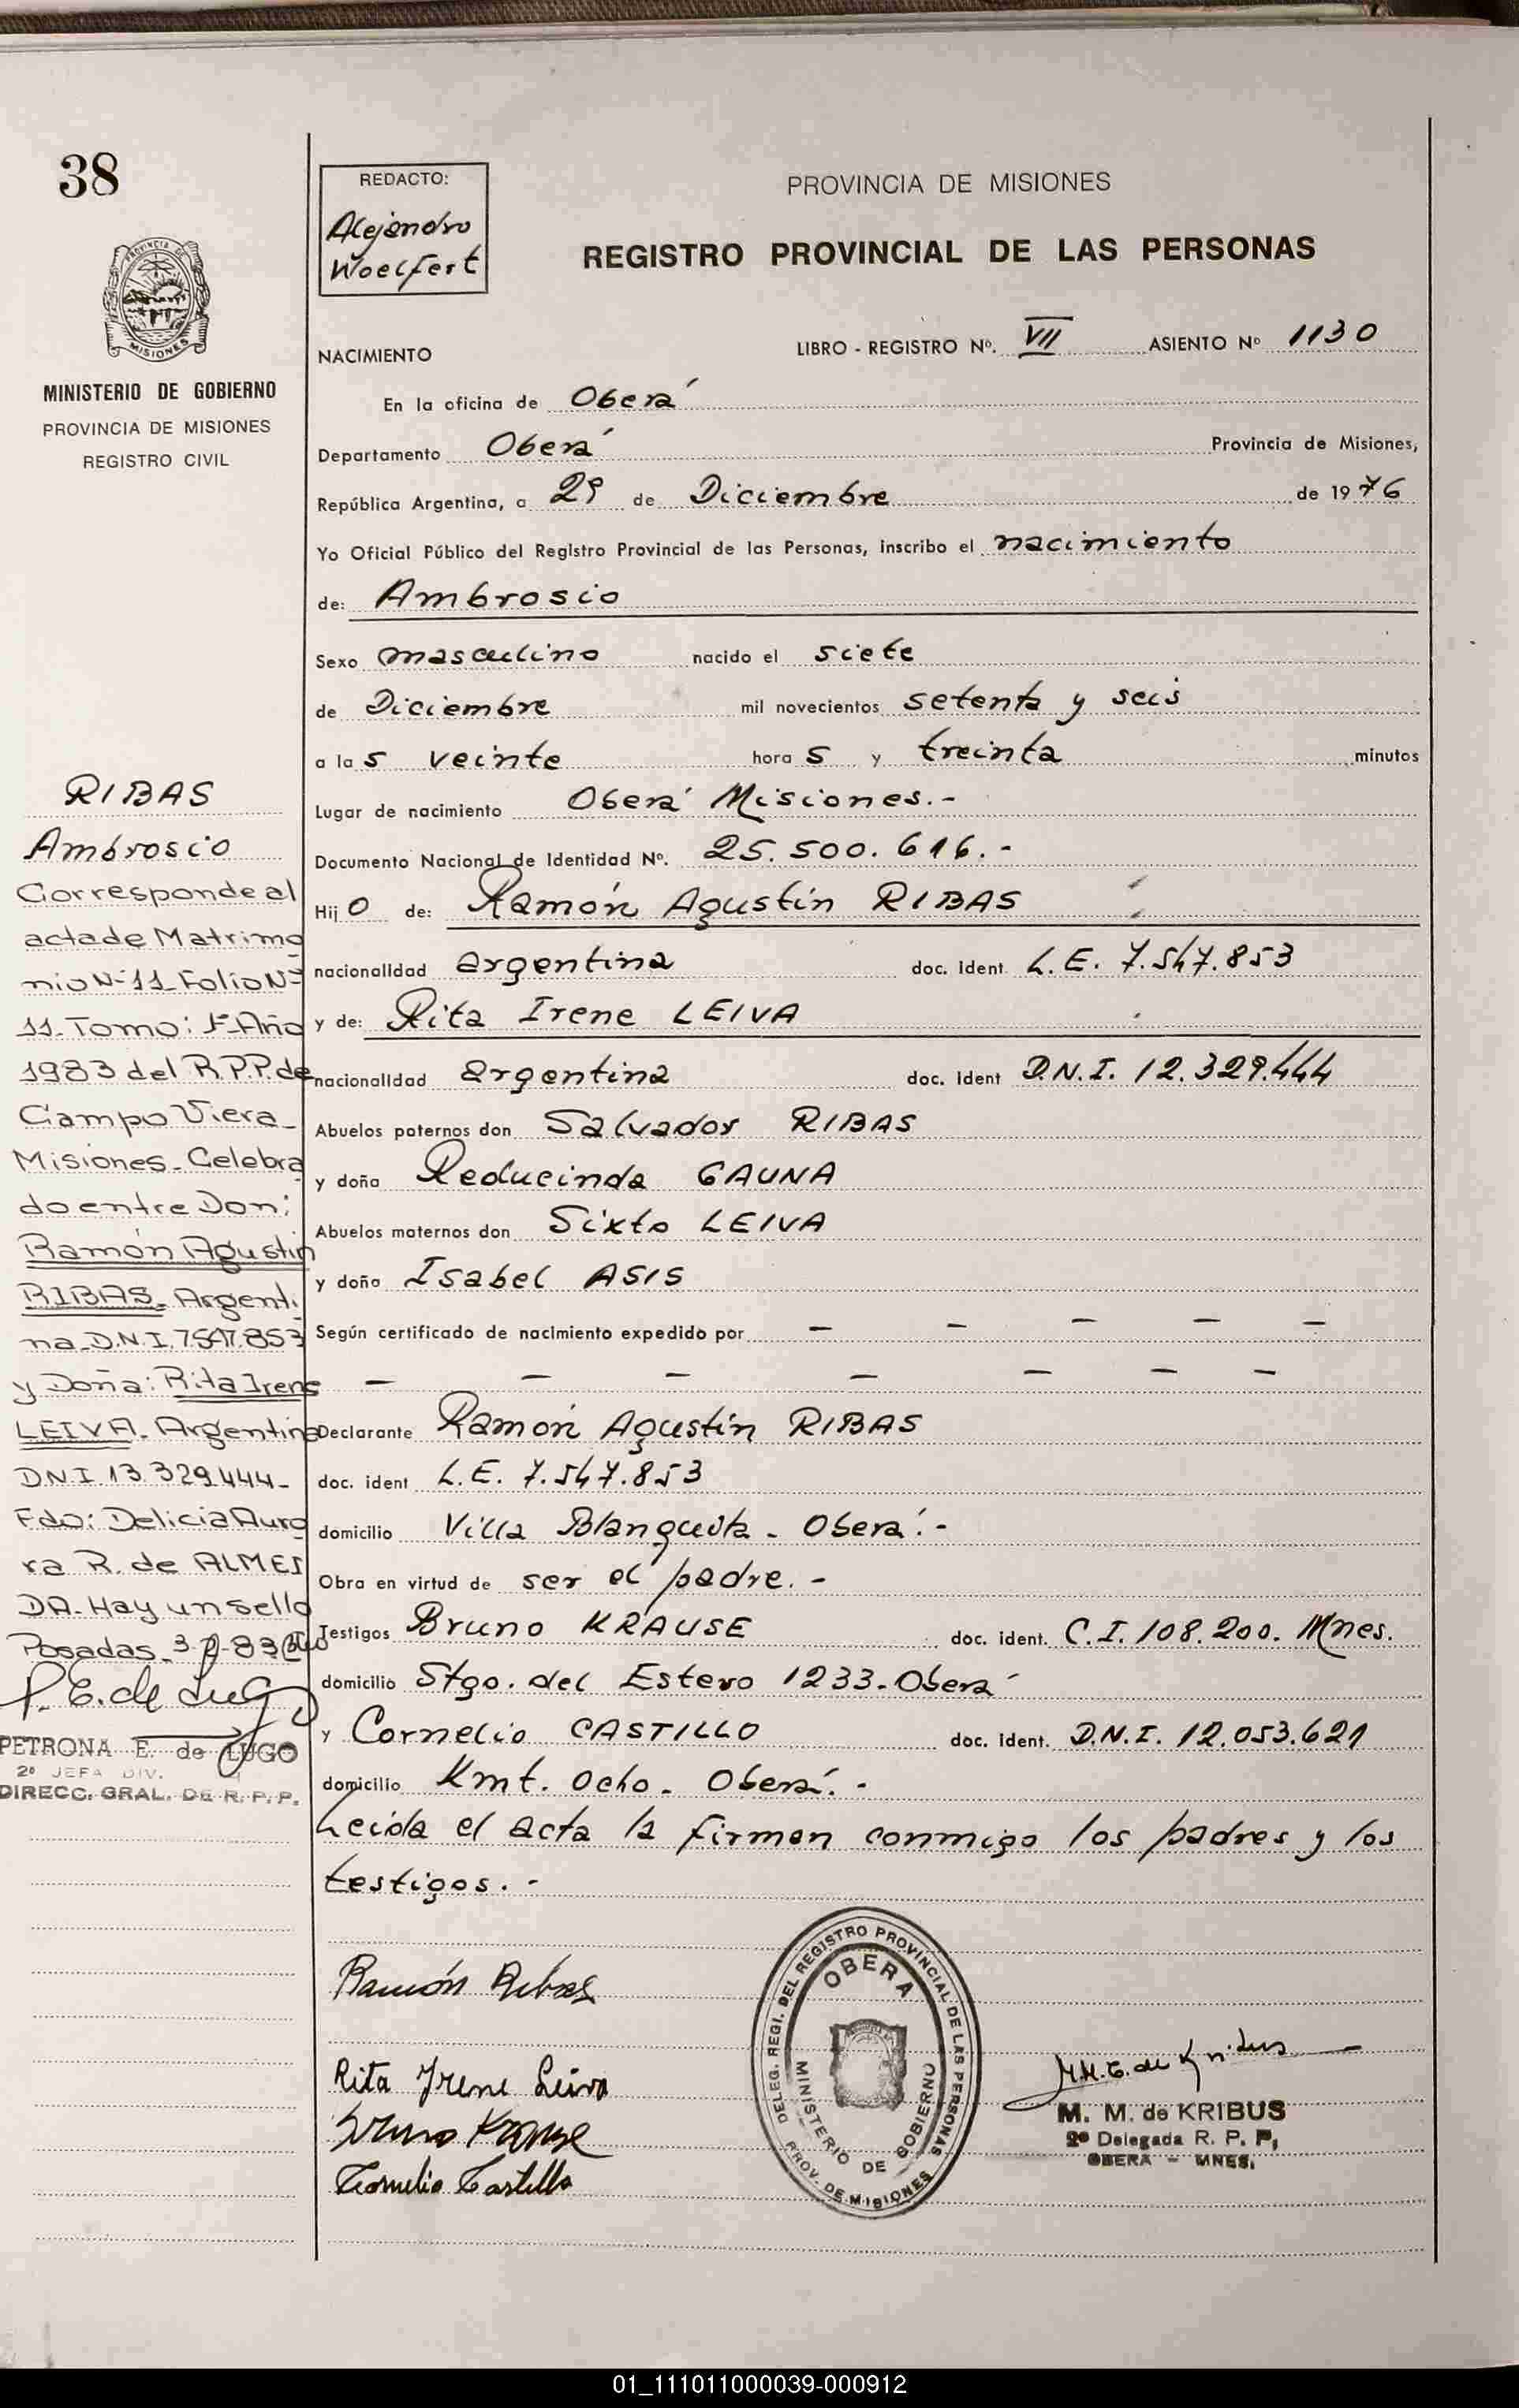 38
PROVINCIA DE MISIONES
MISIONES
MINISTERIO DE GOBIERNO
PROVINCIA DE MISIONES
REGISTRO CIVIL
REDACTO:
Alejandro
Woelfert
PROVINCIA DE MISIONES
REGISTRO PROVINCIAL DE LAS PERSONAS
NACIMIENTO
LIBRO - REGISTRO Nº. VII ASIENTO Nº 1130
En la oficina de Oberá
Departamento Oberá Provincia de Misiones,
República Argentina, a 29 de Diciembre de 1976
Yo Oficial Público del Registro Provincial de las Personas, inscribo el nacimiento
de: Ambrosio
Sexo masculino nacido el siete
de Diciembre mil novecientos setenta y seis
a las veinte horas y treinta minutos
Lugar de nacimiento Oberá Misiones.-
Documento Nacional de Identidad Nº. 25.500.616.-
Hijo de: Ramón Agustín RIBAS
nacionalidad argentina doc. ident L.E. 7.547.853
y de: Rita Irene LEIVA
nacionalidad argentina doc. ident D.N.I. 12.329.444
Abuelos paternos don Salvador RIBAS
y doña Reducinda GAUNA
Abuelos maternos don Sixto LEIVA
y doña Isabel ASIS
Según certificado de nacimiento expedido por — — — — —
— — — — — — —
Declarante Ramón Agustín RIBAS
doc. ident L.E. 7.547.853
domicilio Villa Blanquita - Oberá.-
Obra en virtud de ser el padre.-
Testigos Bruno KRAUSE doc. ident. C.I. 108.200. Mnes.
domicilio Stgo. del Estero 1233-Oberá
y Cornelio CASTILLO doc. ident. D.N.I. 12.053.621
domicilio Kmt. ocho - Oberá.-
Leida el acta la firman conmigo los padres y los
testigos.-
RIBAS
Ambrosio
Corresponde al
acta de Matrimo
nio Nº 11 Folio Nº
11-Tomo: 1º-Año
1983 del R.P.P. de
Campo Viera-
Misiones-Celebra
do entre Don:
Ramón Agustin
RIBAS-Argenti
na-D.N.I. 7.547.853
y Doña: Rita Irene
LEIVA-Argentina
D.N.I. 13.329.444-
Fdo: Delicia Auro
ra R. de ALMEI
DA-Hay un sello
Posadas
P. E. de Lugo
PETRONA E. de LUGO
2º JEFA DIV.
DIRECC. GRAL. DE R. P. P.
Ramón Ribas
Rita Irene Leiva
Bruno Krause
Cornelio Castillo
DELEG. REGI. DEL REGISTRO PROVINCIAL DE LAS PERSONAS
OBERA
MINISTERIO DE GOBIERNO
PROV. DE MISIONES
M. M. de KRIBUS
2º Delegada R. P. P,
OBERA - MNES.
01_111011000039-000912